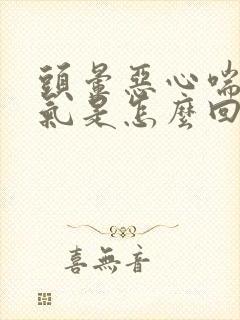 頭暈惡心喘
氣是怎麼回
喜無音